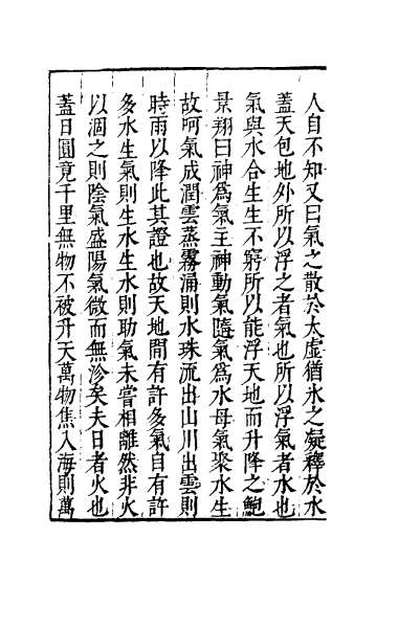 人自不知又曰氣之散於太虛猶氷之凝釋於水
蓋天包地外所以浮之者氣也所以浮氣者水也
氣與水合生生不窮所以能浮天地而升降之鮑
景翔曰神爲氣主神動氣隨氣爲水母氣聚水生
故呵氣成潤雲蒸霧涌則水珠流出山川出雲則
時雨以降此其證也故天地間有許多氣自有許
多水生氣則生水生水則助氣未嘗相離然非火
以涸之則陰氣盛陽氣微而無沴矣夫日者火也
蓋日圓竟千里無物不被升天萬物焦入海則萬